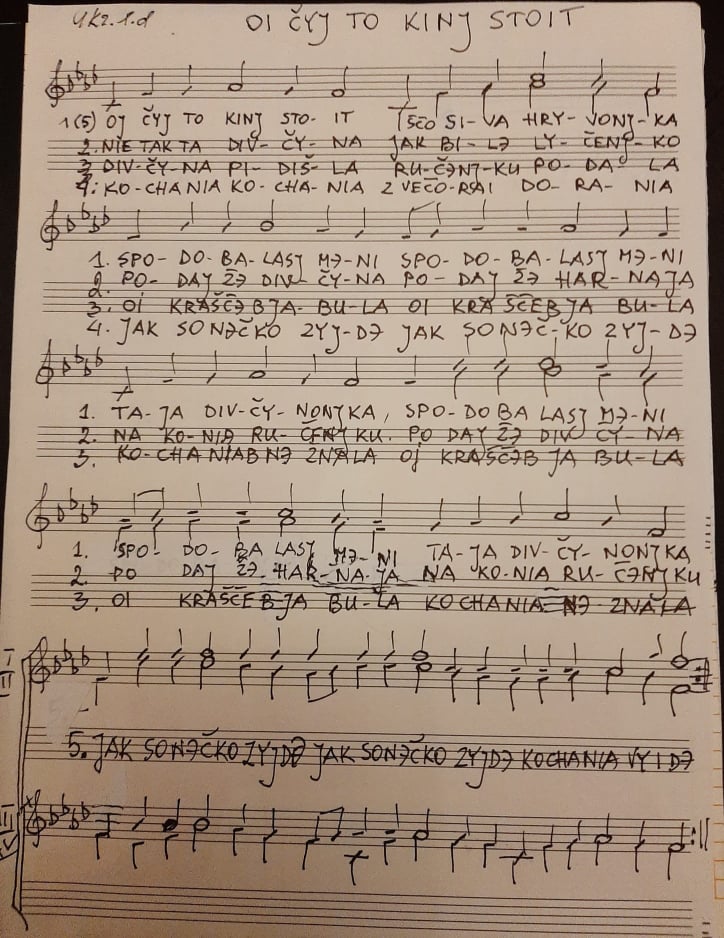 Ukr. 1.d
OI ČYJ TO KINJ STOIT
1(5) OJ ČYJ TO KINJ STO- IT ŠČO SI- VA HRY- VONJ- KA
2. NIE TAK TA DIV- ČY- NA JAK BI- LƏ LY- ČENJ- KO
3 DIV- ČY- NA PI- DIŠ- LA RU- ČƏNJ- KU PO- DA- LA
4. KO- CHANIA KO- CHA- NIA Z VEČO- RAI DO- RA- NIA
1. SPO- DO- BA- LASJ MƏ- NI SPO- DO- BA- LASJ MƏ- NI
2. PO- DAJ ŽƏ DIV- ČY- NA PO- DAJ ŽƏ HAR- NAJA
3. OI KRAŠČƏ B JA- BU- LA OI KRA ŠČEB JA BU- LA
4. JAK SO NƏČKO ZYJ- DƏ JAK SO NƏČ- KO ZYJ- DƏ
1. TA- JA DIV- ČY- NONJKA, SPO- DO BA LASJ MƏ- NI
2. NA KO- NIA RU- ČENJ KU. PO DAJ ŽƏ DIV ČY- NA
3. KO- CHA NIAB NƏ ZNALA OJ KRAŠČƏB JA BU- LA
1. SPO- DO- BA LASJ MƏ- NI TA- JA DIV- ČY- NONJKA
2. PO DAJ ŽƏ HAR- NA- JA NA KO- NIA RU- ČƏNJKU
3. OI KRAŠČEB JA BU- LA KOCHANIA NƏ- ZNAŁA
I
II
5. JAK SONƏČKO ZYJDƏ JAK SONƏČKO ZYJDƏ KOCHANIA VYIDƏ
III